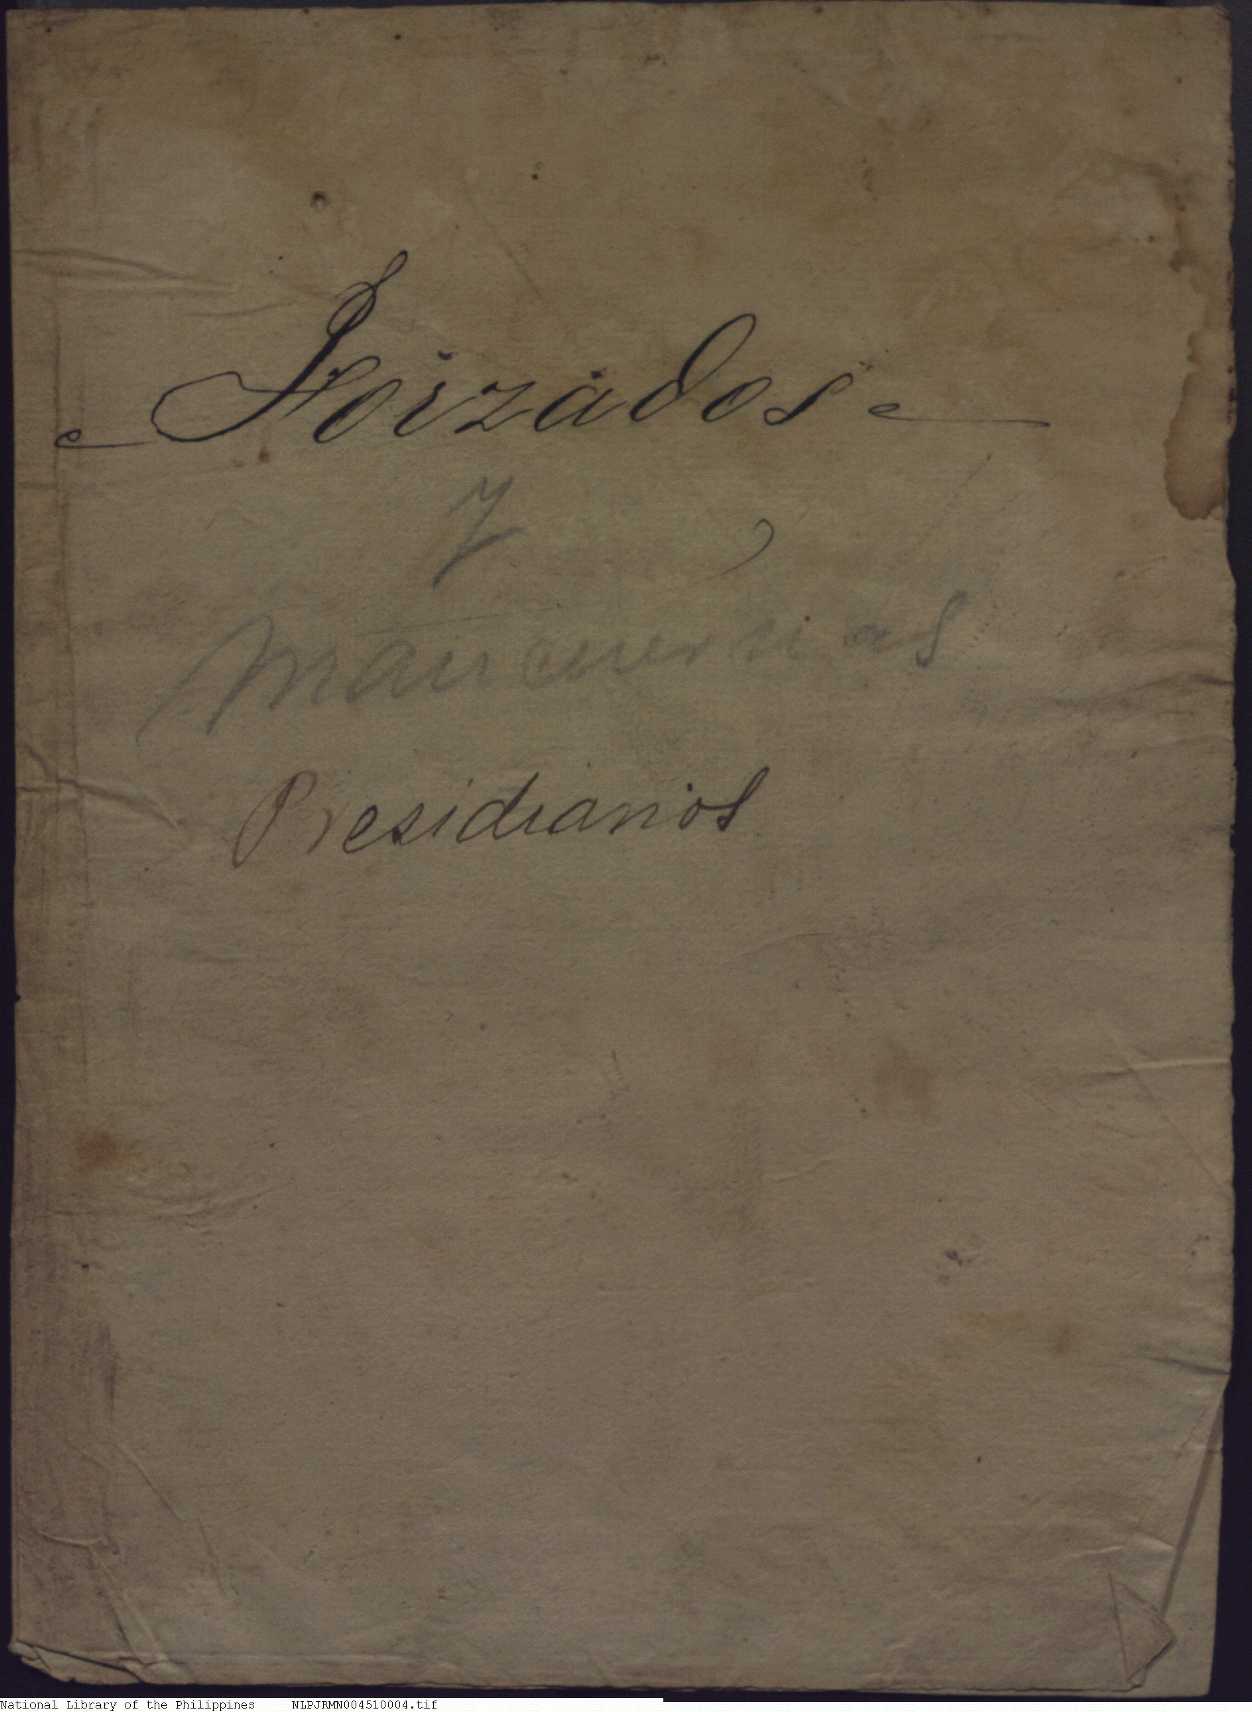 Forzados
y
Mancuernas
Presidiarios
National Library of the Philippines NLPJRMN004510004.tif